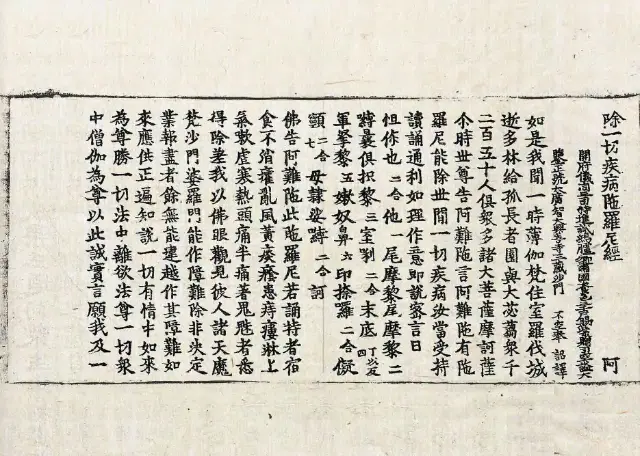 除一切疾病陁羅尼經　阿
開府儀同三司特進試鴻臚卿肅國公食邑三千户賜紫贈司空謚大
鑒正号大廣智大興善寺三藏沙門　不空奉　詔譯
如是我聞一時薄伽梵住室羅伐城
逝多林給孤長者園與大苾蒭衆千
二百五十人俱衆多諸大菩薩摩訶薩
尒時世尊告阿難陁言阿難陁有陁
羅尼能除世間一切疾病汝當受持
讀誦通利如理作意即說密言曰
怛你也二合他一尾摩黎尾摩黎二
嚩曩俱枳黎三室唎二合末底丁以反四
軍拏黎五嫰奴鼻六印捺羅二合儗
顊七二合母隷娑嚩二合訶
佛告阿難陁此陁羅尼若誦持者宿
食不消霍亂風黄痰癊患痔瘻淋上
氣嗽虐寒熱頭痛半痛著鬼魅者悉
得除差我以佛眼觀見彼人諸天魔
梵沙門婆羅門能作障難除非決定
業報盡者餘無能違越作其障難如
來應供正遍知說一切有情中如來
為尊勝一切法中離欲法尊一切衆
中僧伽為尊以此誠實言願我及一